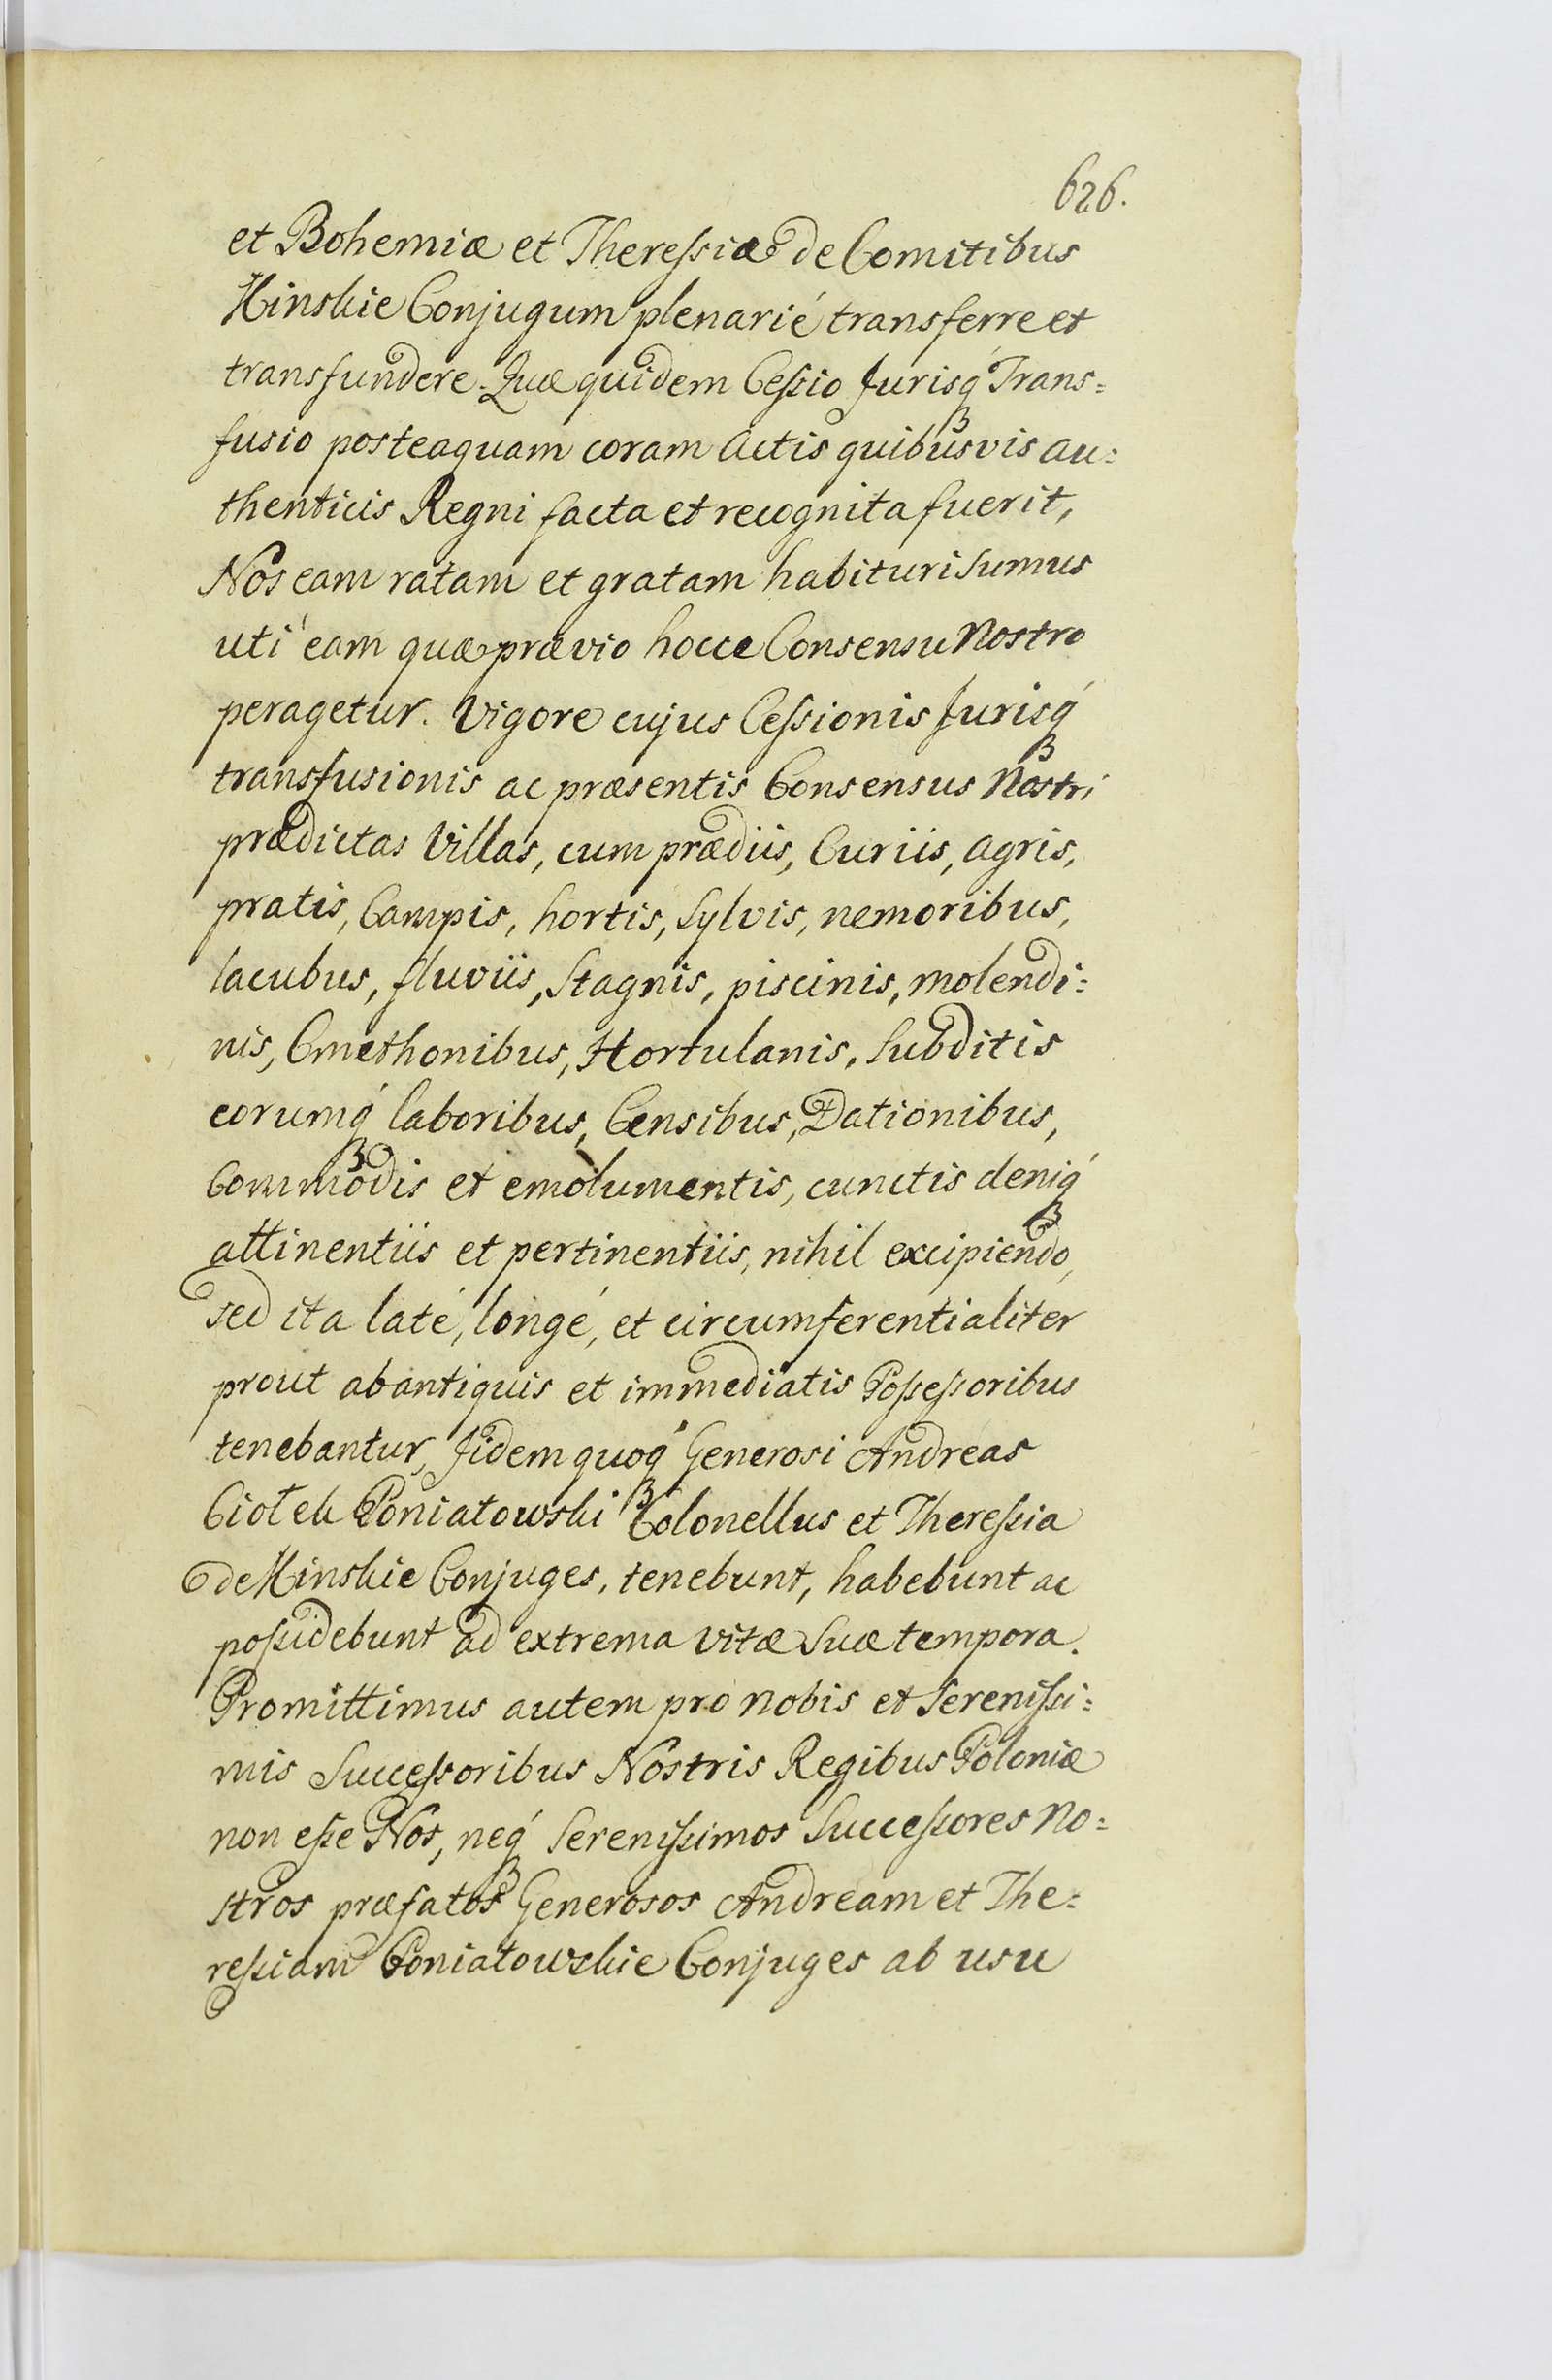 626.
et Bohemiæ et Theressiæ de Comitibus
Kinskie Conjugum plenarié transferre et
transfundere. Quæ quidem Cessio Jurisq́ꝫ Trans=
fusio posteaquam coram Actis quibusvis au=
thenticis Regni facta et recognita fuerit,
Nos eam ratam et gratam habituri sumus
uti eam quæ prævio hocce Consensu Nostro
peragetur. Vigore cujus Cessionis Jurisq́ꝫ
transfusionis ac præsentis Consensus Nostri
prædictas Villas, cum prædiis, Curiis, agris,
pratis, Campis, hortis, Sylvis, nemoribus,
lacubus, fluviis, Stagnis, piscinis, molendi=
nis, Cmethonibus, Hortulanis, Subditis
eorumq́ꝫ laboribus, Censibus, Dationibus,
Commodis et emolumentis, cunctis deniq́ꝫ
attinentiis et pertinentiis, nihil excipiendo,
sed ita laté, longé, et circumferentialiter
prout ab antiquis et immediatis Possessoribus
tenebantur, Jidem quoq́ꝫ Generosi Andreas
Ciołek Poniatowski Colonellus et Theressia
de Kinskie Conjuges, tenebunt, habebunt ac
possidebunt ad extrema vitæ Suæ tempora.
Promittimus autem pro Nobis et Serenissi=
mis Successoribus Nostris Regibus Poloniæ
non esse Nos, neq́ꝫ Serenissimos Successores No=
stros præfatos Generosos Andream et The=
ressiam Poniatowskie Conjuges ab usu